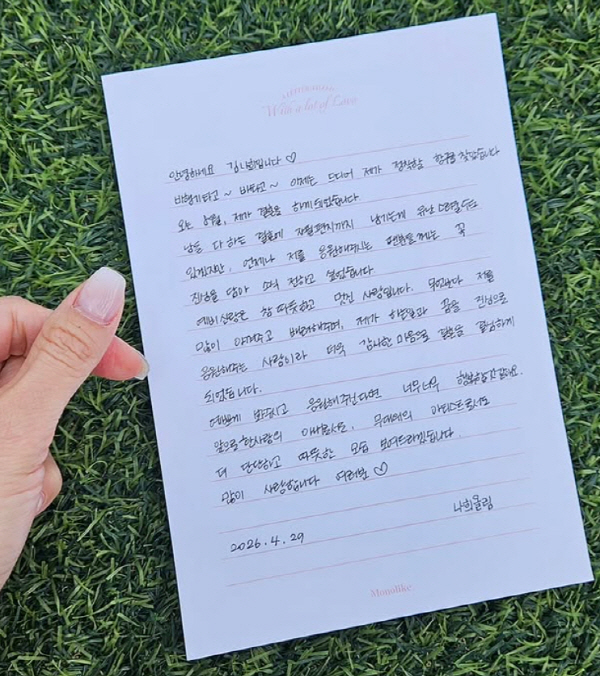 Write a lot of Love
안녕하세요 김나희입니다 ♡
비행기타고~ 배타고~ 이제는 드디어 제가 정착할 항구를 찾았습니다
오는 9월, 제가 결혼을 하게되었습니다
남들 다 하는 결혼에 자필편지까지 남기는게 유난스러울수도
있겠지만, 언제나 저를 응원해주시는 팬분들께는 꼭
진심을 담아 소식 전하고 싶었습니다
예비신랑은 참 따뜻하고 멋진 사람입니다. 무엇보다 저를
많이 아껴주고 배려해주며, 제가 하는일과 꿈을 진심으로
응원해주는 사람이라 더욱 감사한 마음으로 결혼을 결심하게
되었습니다.
예쁘게 봐주시고 응원해주신다면 너무너무 행복할것같아요.
앞으로 한사람의 아내로서도, 무대위의 아티스트로서도
더 단단하고 따뜻한 모습 보여드리겠습니다
많이 사랑합니다 여러분 ♡
나희올림
2026.4.29
Monolike